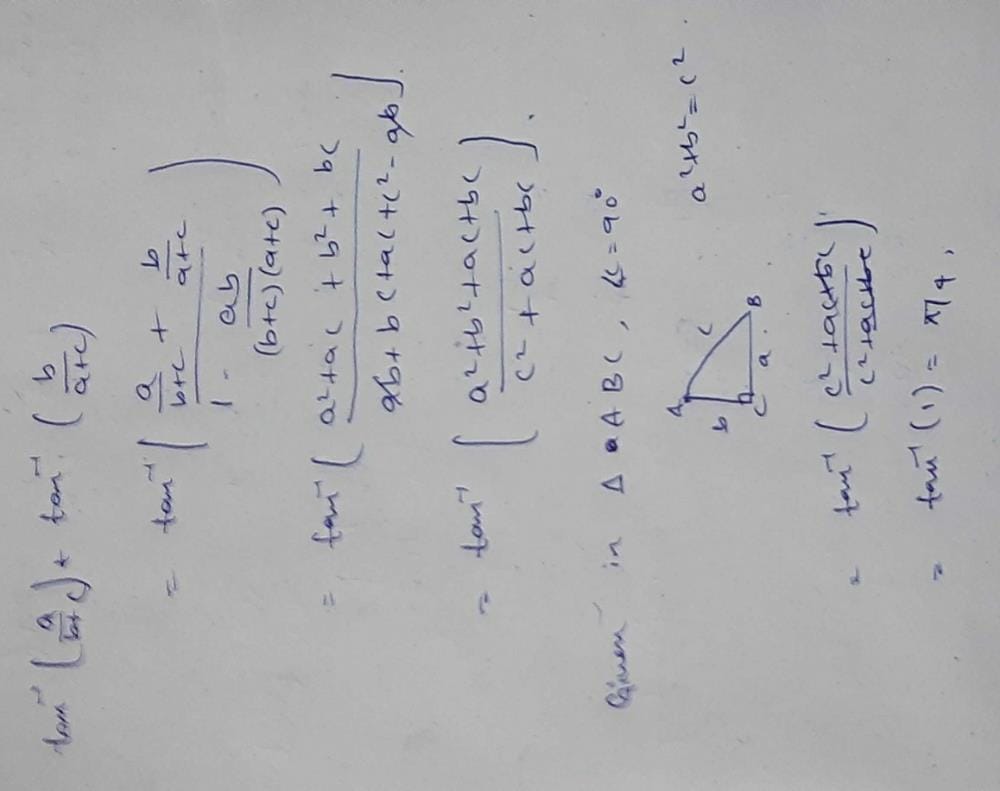 tan⁻¹ (a/(b+c)) + tan⁻¹ (b/(a+c))
= tan⁻¹ ( (a/(b+c) + b/(a+c)) / (1 - ab/((b+c)(a+c))) )
= tan⁻¹ ( (a²+ac+b²+bc) / (ab+bc+ac+c²-ab) ).
= tan⁻¹ ( (a²+b²+ac+bc) / (c²+ac+bc) ).
Given in Δ ABC, ∠c=90°
A
b
c
C
a
B
a²+b²=c².
= tan⁻¹ ( (c²+ac+bc) / (c²+ac+bc) )
= tan⁻¹ (1) = π/4,